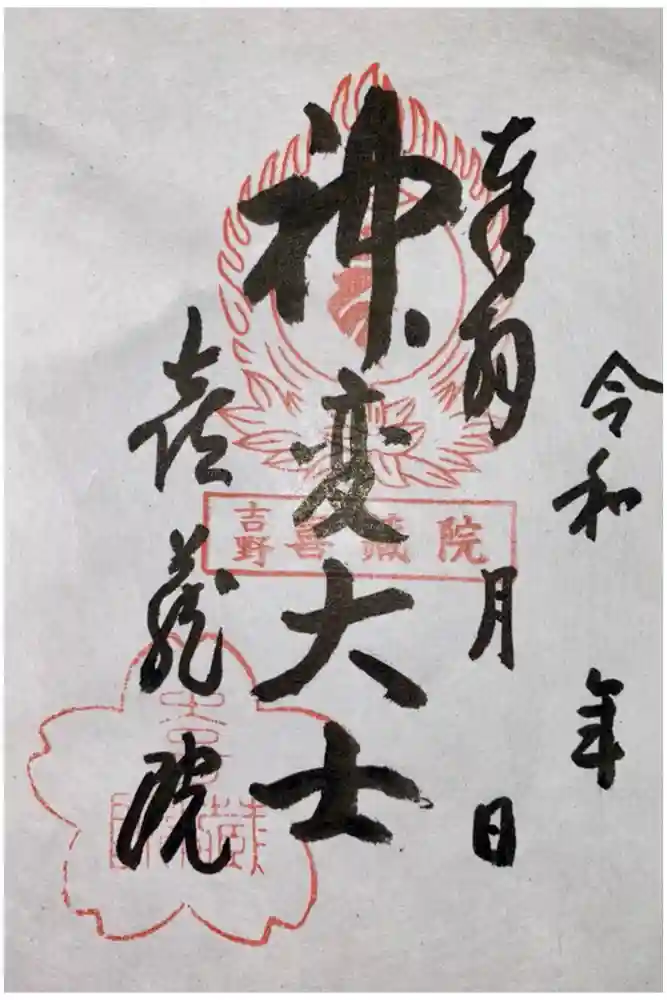 令和 年
奉拝 月 日
神変大士
喜蔵院
吉野 喜蔵院